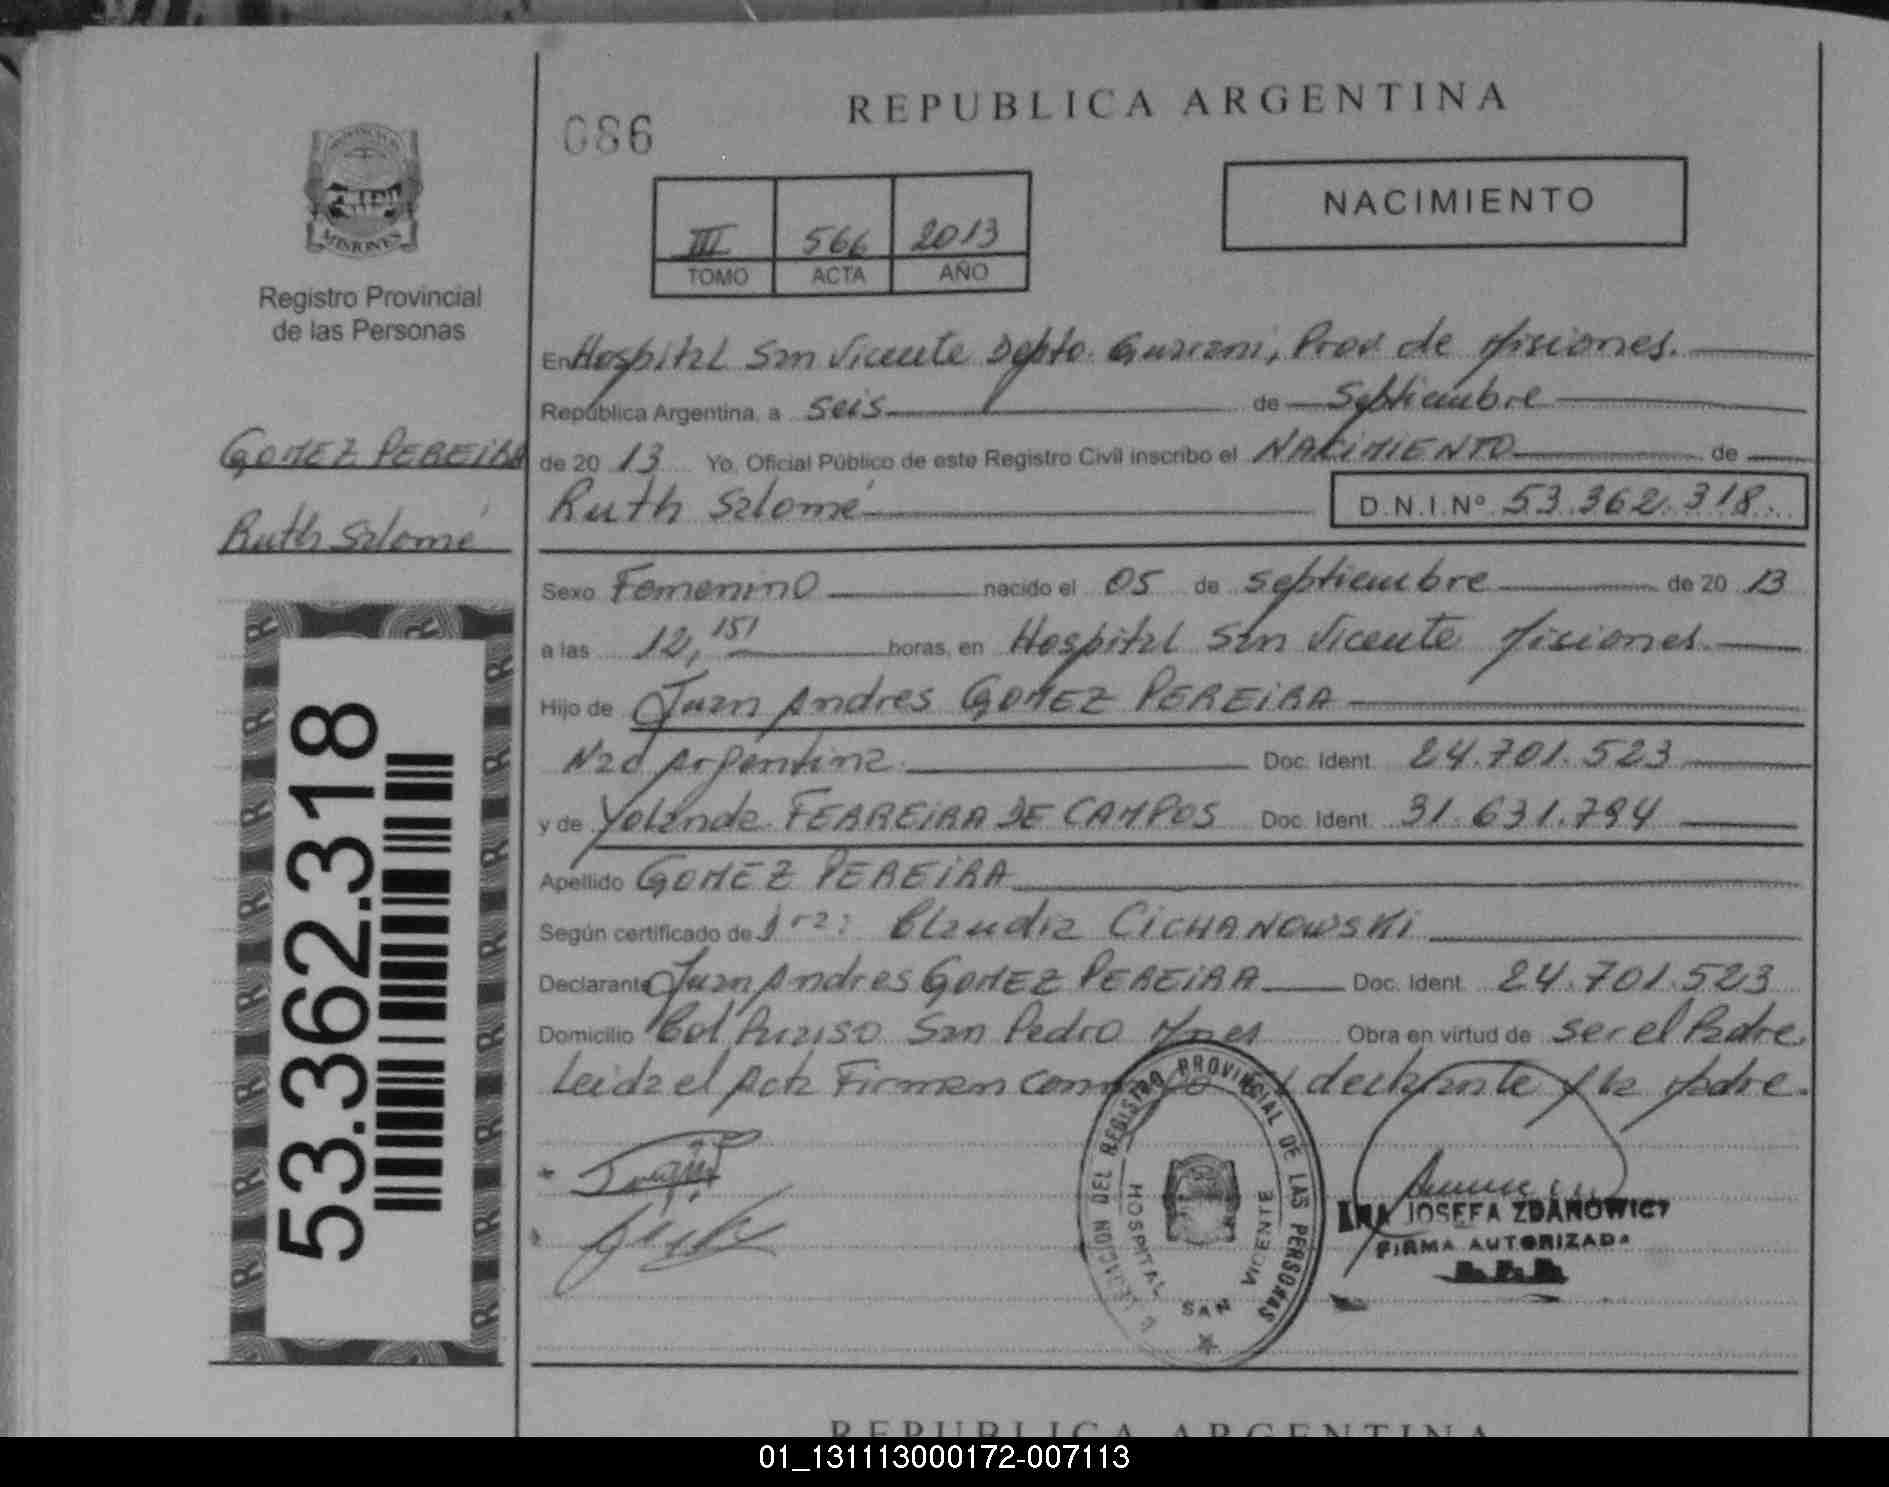 086
REPUBLICA ARGENTINA
NACIMIENTO
III 566 2013
TOMO ACTA AÑO
MISIONES
Registro Provincial
de las Personas
GOMEZ PEREIRA
Ruth Salomé
53.362.318
En Hospital San Vicente Dpto. Guarani, Prov. de Misiones.
República Argentina, a seis de Septiembre
de 20 13 Yo, Oficial Público de este Registro Civil inscribo el NACIMIENTO de
Ruth Salomé D.N.I.Nº 53.362.318.
Sexo Femenino nacido el 05 de septiembre de 20 13
a las 12,15' horas, en Hospital San Vicente Misiones.
Hijo de Juan Andres GOMEZ PEREIRA
Nac Argentina. Doc. Ident. 24.701.523
y de Yolanda FERREIRA DE CAMPOS Doc. Ident. 31.631.794
Apellido GOMEZ PEREIRA
Según certificado de Dra: Claudia CICHANOWSKI
Declarante Juan Andres GOMEZ PEREIRA Doc. Ident. 24.701.523
Domicilio Col Paraiso San Pedro Mnes Obra en virtud de ser el Padre.
Leida el Acta Firman conmigo el declarante y la Madre.
DELEGACION DEL REGISTRO PROVINCIAL DE LAS PERSONAS
HOSPITAL SAN VICENTE
JOSEFA ZDANOWICZ
FIRMA AUTORIZADA
REPUBLICA ARGENTINA
01_131113000172-007113